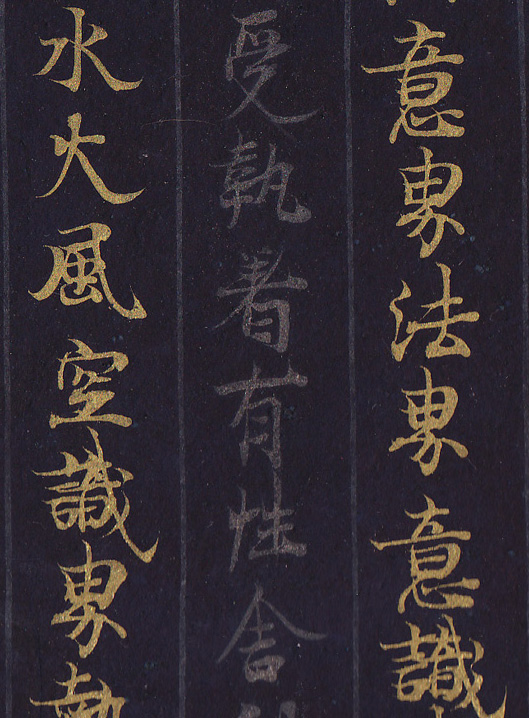 意界法界意識
受執著有性舍
水火風空識界執